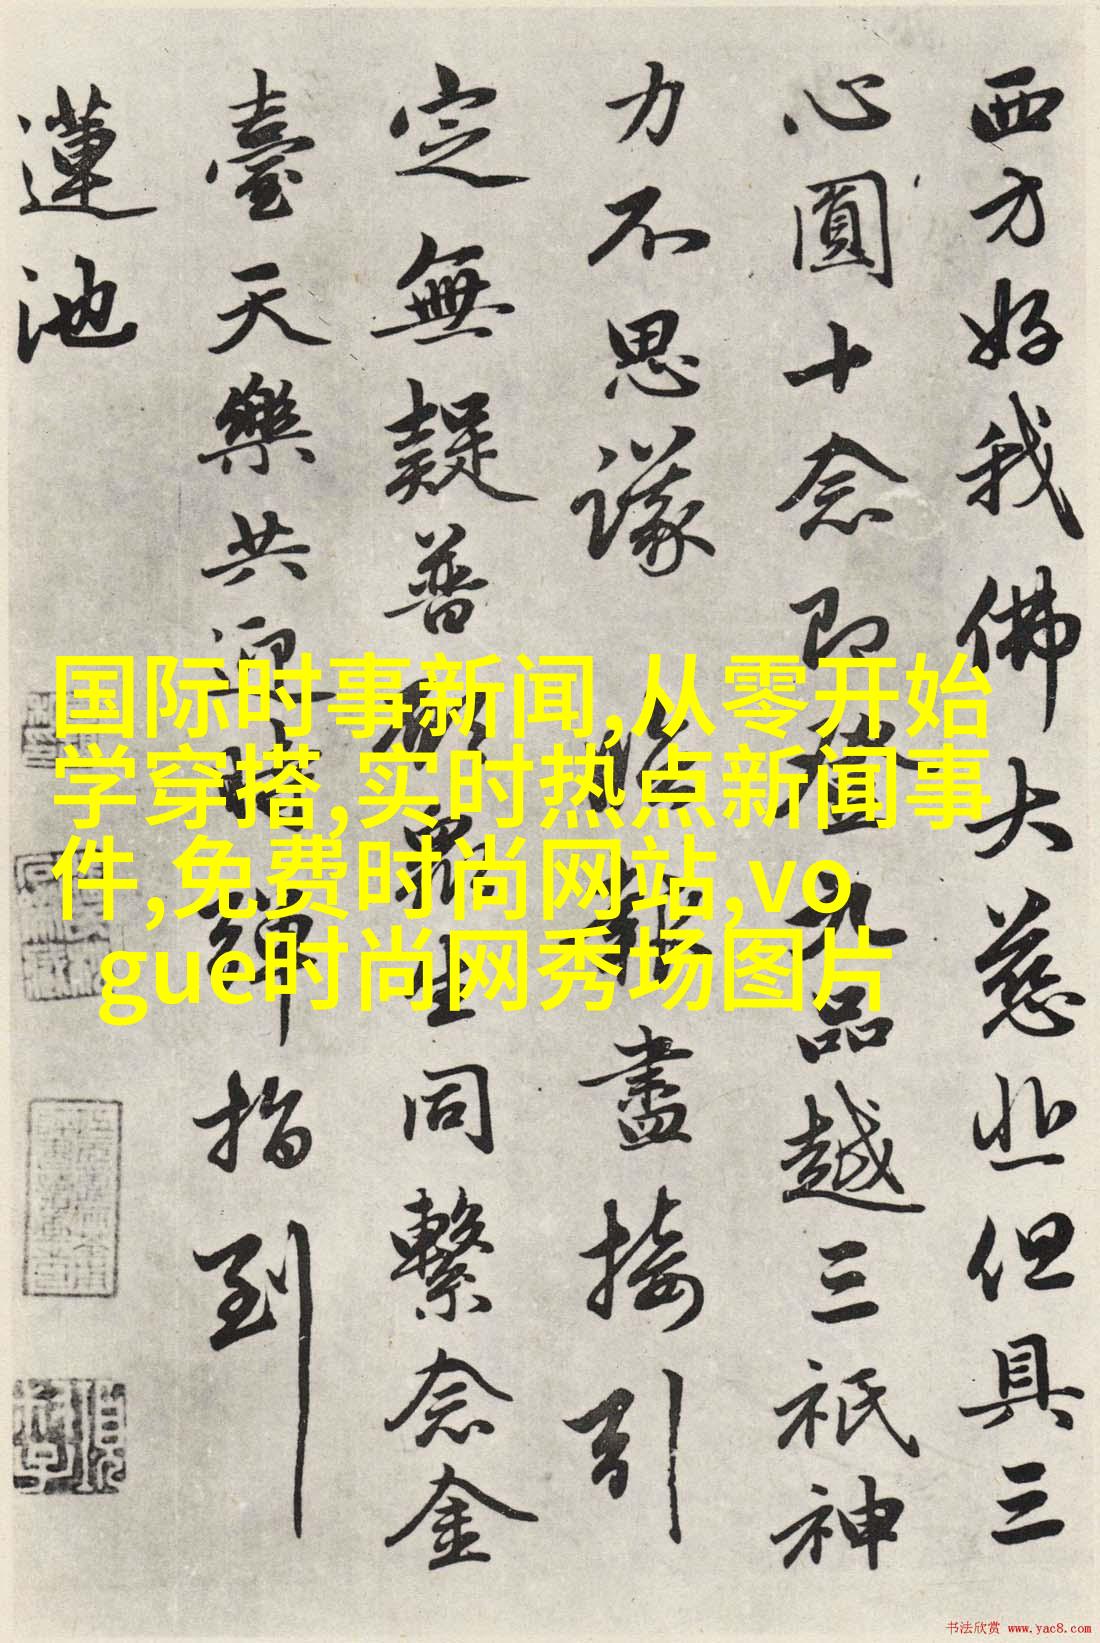 西方好我佛大慈悲但具三
心圓十念即登九品越三祇神
力不思議臨報盡接引
定無疑普願衆生同繫念金
臺天樂共迎時彈指到
蓮池
国际时事新闻,从零开始
学穿搭,实时热点新闻事
件,免费时尚网站,vo
gue时尚网秀场图片
书法欣赏 www.yac8.com